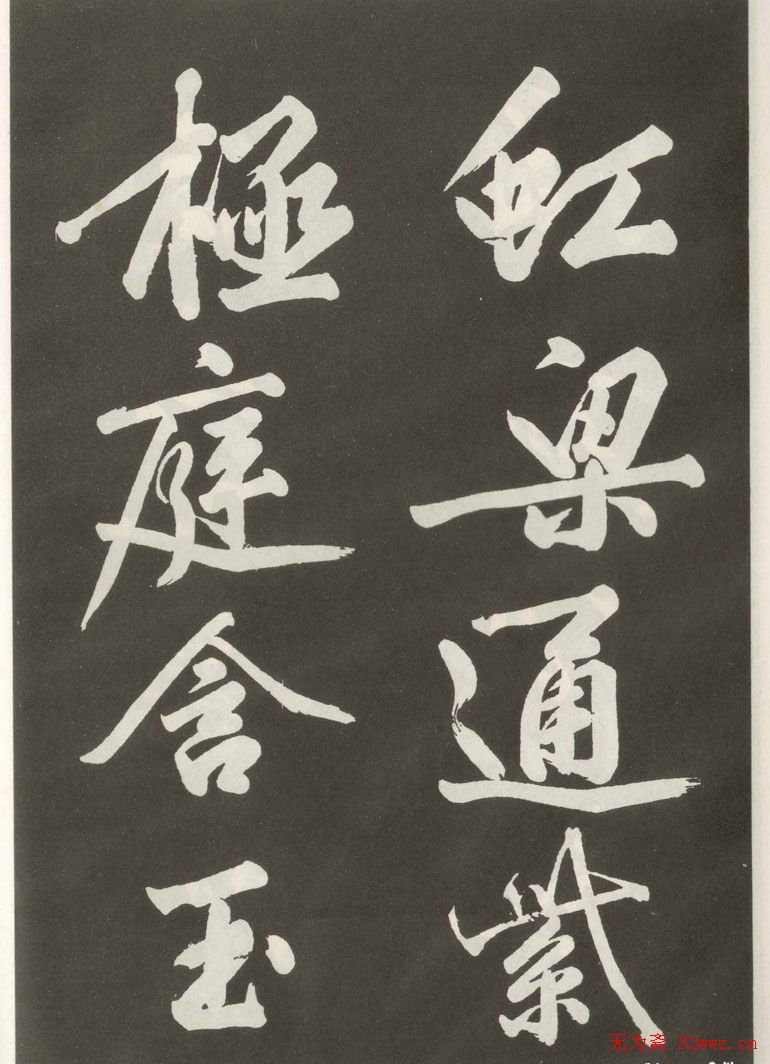 虹梁通紫
極庭含玉
无为斋.52wwz.cn